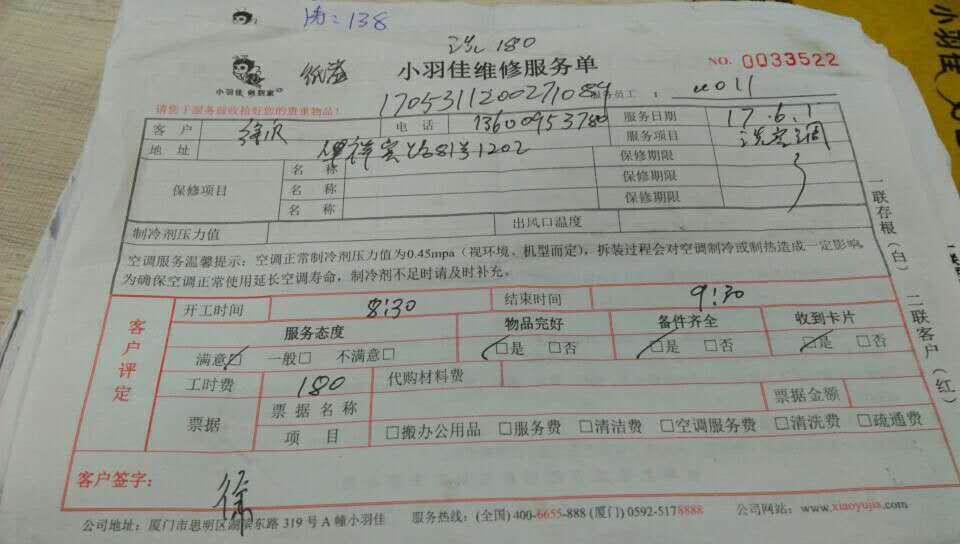 138
180
NO. 0033522
小羽佳 创新家
小羽佳维修服务单
1705311200271089 服务员工:
请您于服务前收拾好您的贵重物品!
客户 徐 电话 13600953780 服务日期 17.6.1
地址 81号1202 服务项目 洗空调
保修项目 名称 保修期限
名称 保修期限
名称 保修期限
制冷剂压力值 出风口温度
空调服务温馨提示:空调正常制冷剂压力值为0.45mpa(视环境、机型而定),拆装过程会对空调制冷或制热造成一定影响,
为确保空调正常使用延长空调寿命,制冷剂不足时请及时补充。
客户评定
开工时间 8:30 结束时间 9:30
服务态度 物品完好 备件齐全 收到卡片
满意☑ 一般□ 不满意□ ☑是 □否 ☑是 □否 ☑是 □否
工时费 180 代购材料费
票据 票据名称 票据金额
项目 □搬办公用品 □服务费 □清洁费 □空调服务费 □清洗费 □疏通费
客户签字: 徐
公司地址:厦门市思明区湖滨东路 319 号 A 幢小羽佳 服务热线:(全国) 400-6655-888 (厦门) 0592-5178888 公司网站:www.xiaoyujia.com
一联存根(白)
二联客户(红)
小羽佳